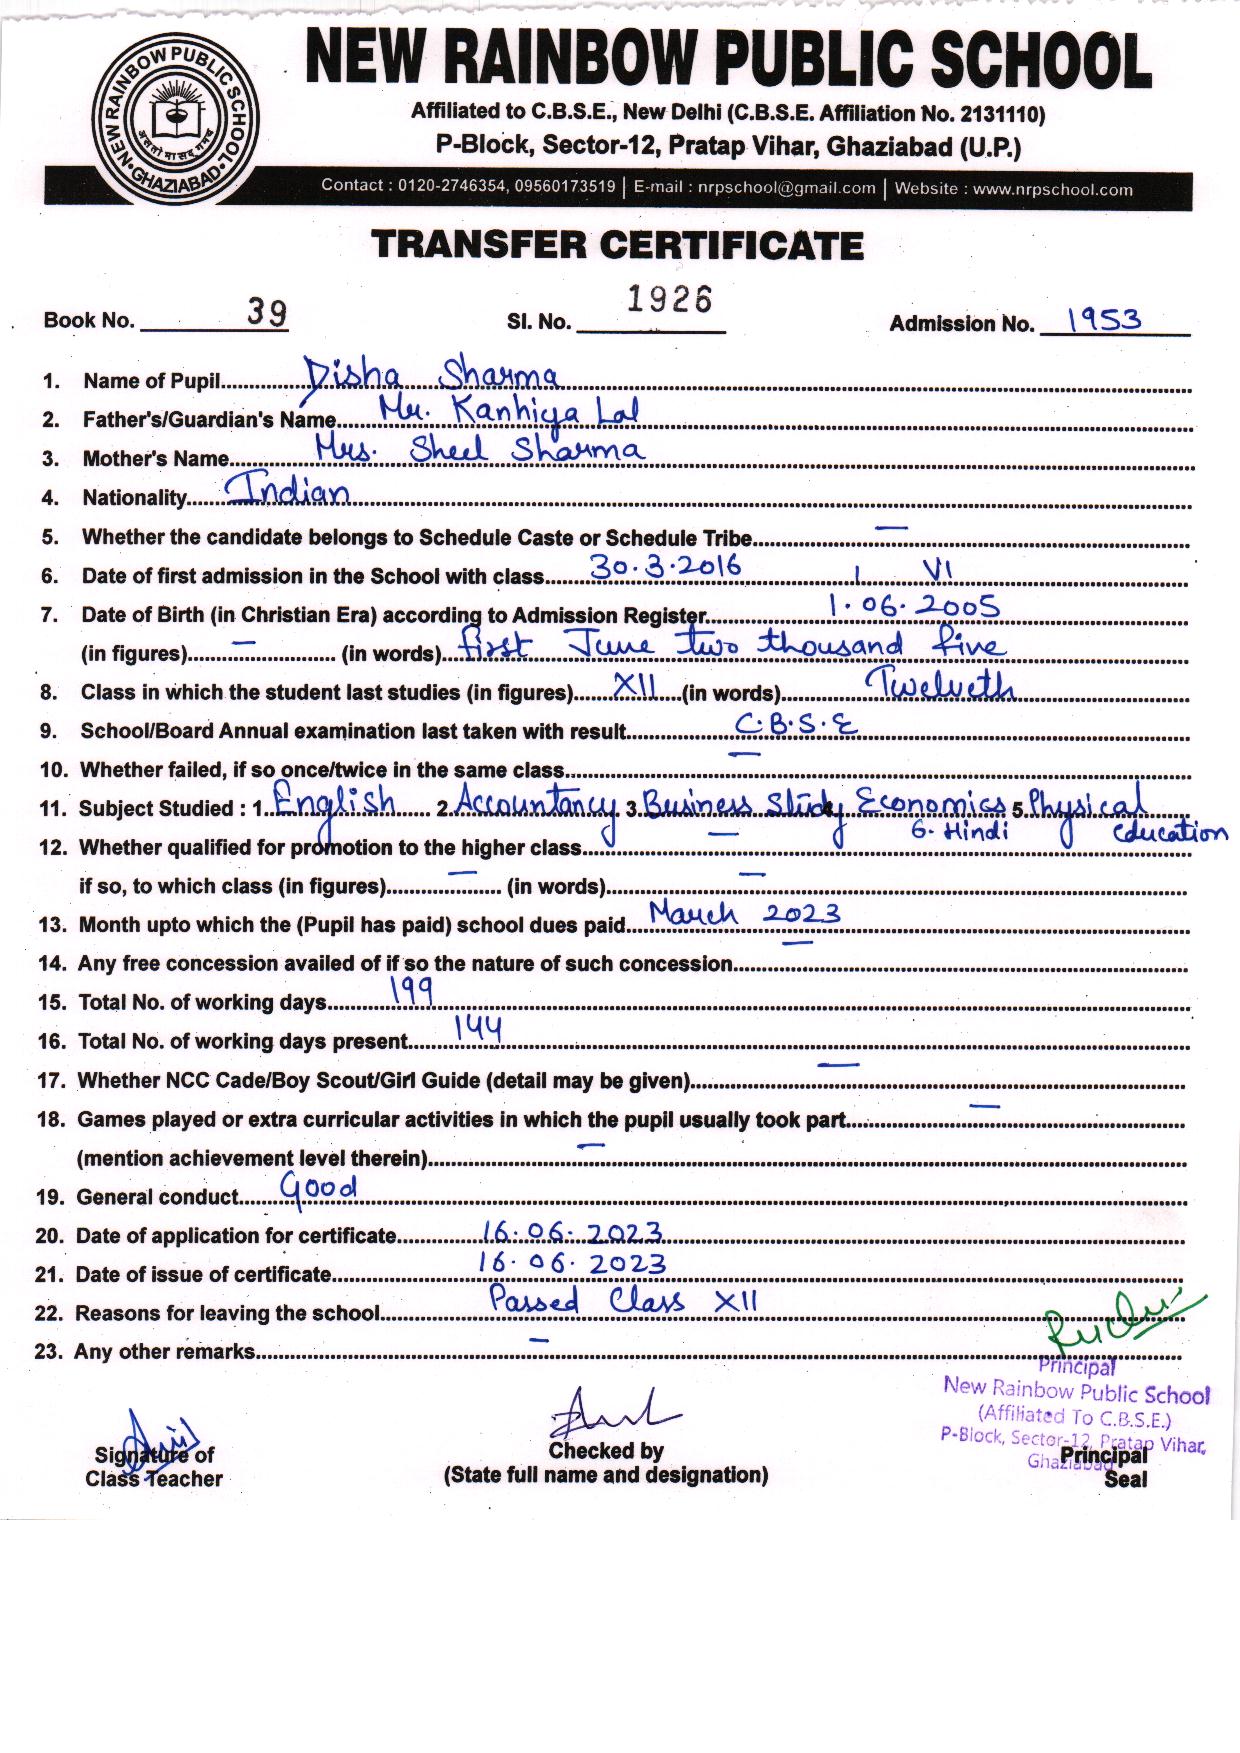 NEW RAINBOW PUBLIC SCHOOL
Affiliated to C.B.S.E., New Delhi (C.B.S.E. Affiliation No. 2131110)
P-Block, Sector-12, Pratap Vihar, Ghaziabad (U.P.)
•NEW RAINBOW PUBLIC SCHOOL• GHAZIABAD
असतो मा सद् गमय
Contact : 0120-2746354, 09560173519 | E-mail : nrpschool@gmail.com | Website : www.nrpschool.com
TRANSFER CERTIFICATE
Book No. 39 Sl. No. 1926 Admission No. 1953
1. Name of Pupil Disha Sharma
2. Father's/Guardian's Name Mr. Kanhiya Lal
3. Mother's Name Mrs. Sheel Sharma
4. Nationality Indian
5. Whether the candidate belongs to Schedule Caste or Schedule Tribe —
6. Date of first admission in the School with class 30.3.2016 | VI
7. Date of Birth (in Christian Era) according to Admission Register 1.06.2005
(in figures) — (in words) first June two thousand five
8. Class in which the student last studies (in figures) XII (in words) Twelveth
9. School/Board Annual examination last taken with result C.B.S.E
10. Whether failed, if so once/twice in the same class —
11. Subject Studied : 1. English 2. Accountancy 3. Business Study 4. Economics 5. Physical
6. Hindi Education
12. Whether qualified for promotion to the higher class —
if so, to which class (in figures) — (in words) —
13. Month upto which the (Pupil has paid) school dues paid March 2023
14. Any free concession availed of if so the nature of such concession —
15. Total No. of working days 199
16. Total No. of working days present 144
17. Whether NCC Cade/Boy Scout/Girl Guide (detail may be given) —
18. Games played or extra curricular activities in which the pupil usually took part —
(mention achievement level therein) —
19. General conduct Good
20. Date of application for certificate 16.06.2023
21. Date of issue of certificate 16.06.2023
22. Reasons for leaving the school Passed Class XII
23. Any other remarks —
Principal
New Rainbow Public School
(Affiliated To C.B.S.E.)
P-Block, Sector-12, Pratap Vihar,
Ghaziabad
Signature of
Class Teacher
Checked by
(State full name and designation)
Principal
Seal